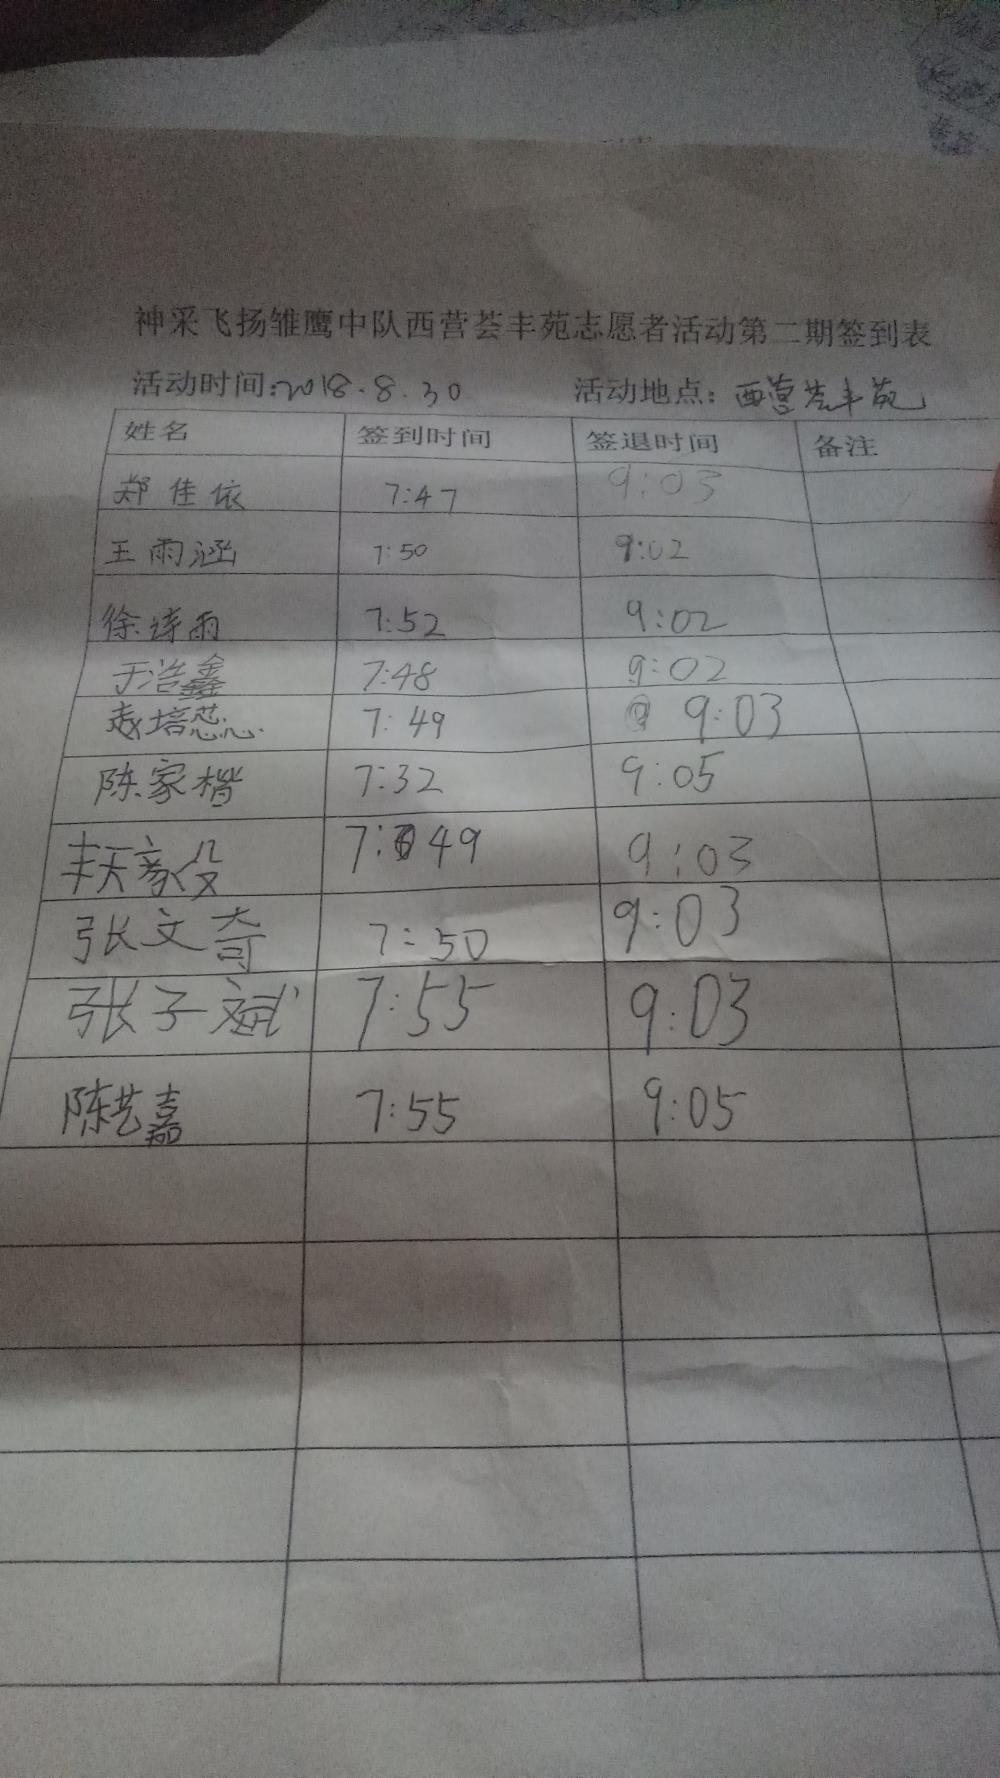 神采飞扬雏鹰中队西营荟丰苑志愿者活动第二期签到表
活动时间:2018.8.30 活动地点:西营荟丰苑
姓名 签到时间 签退时间 备注
郑佳依 7:47 9:03
王雨涵 7:50 9:02
徐诗雨 7:52 9:02
于浩鑫 7:48 9:02
赵培蕊 7:49 9:03
陈家楷 7:32 9:05
7:49 9:03
张文奇 7:50 9:03
张子斌 7:55 9:03
陈艺嘉 7:55 9:05